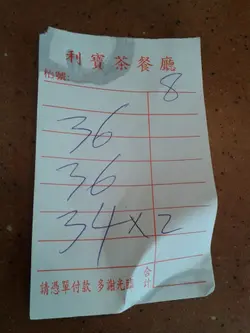 利寶茶餐廳
枱號: 8
36
36
34×2
合計
請憑單付款 多謝光臨